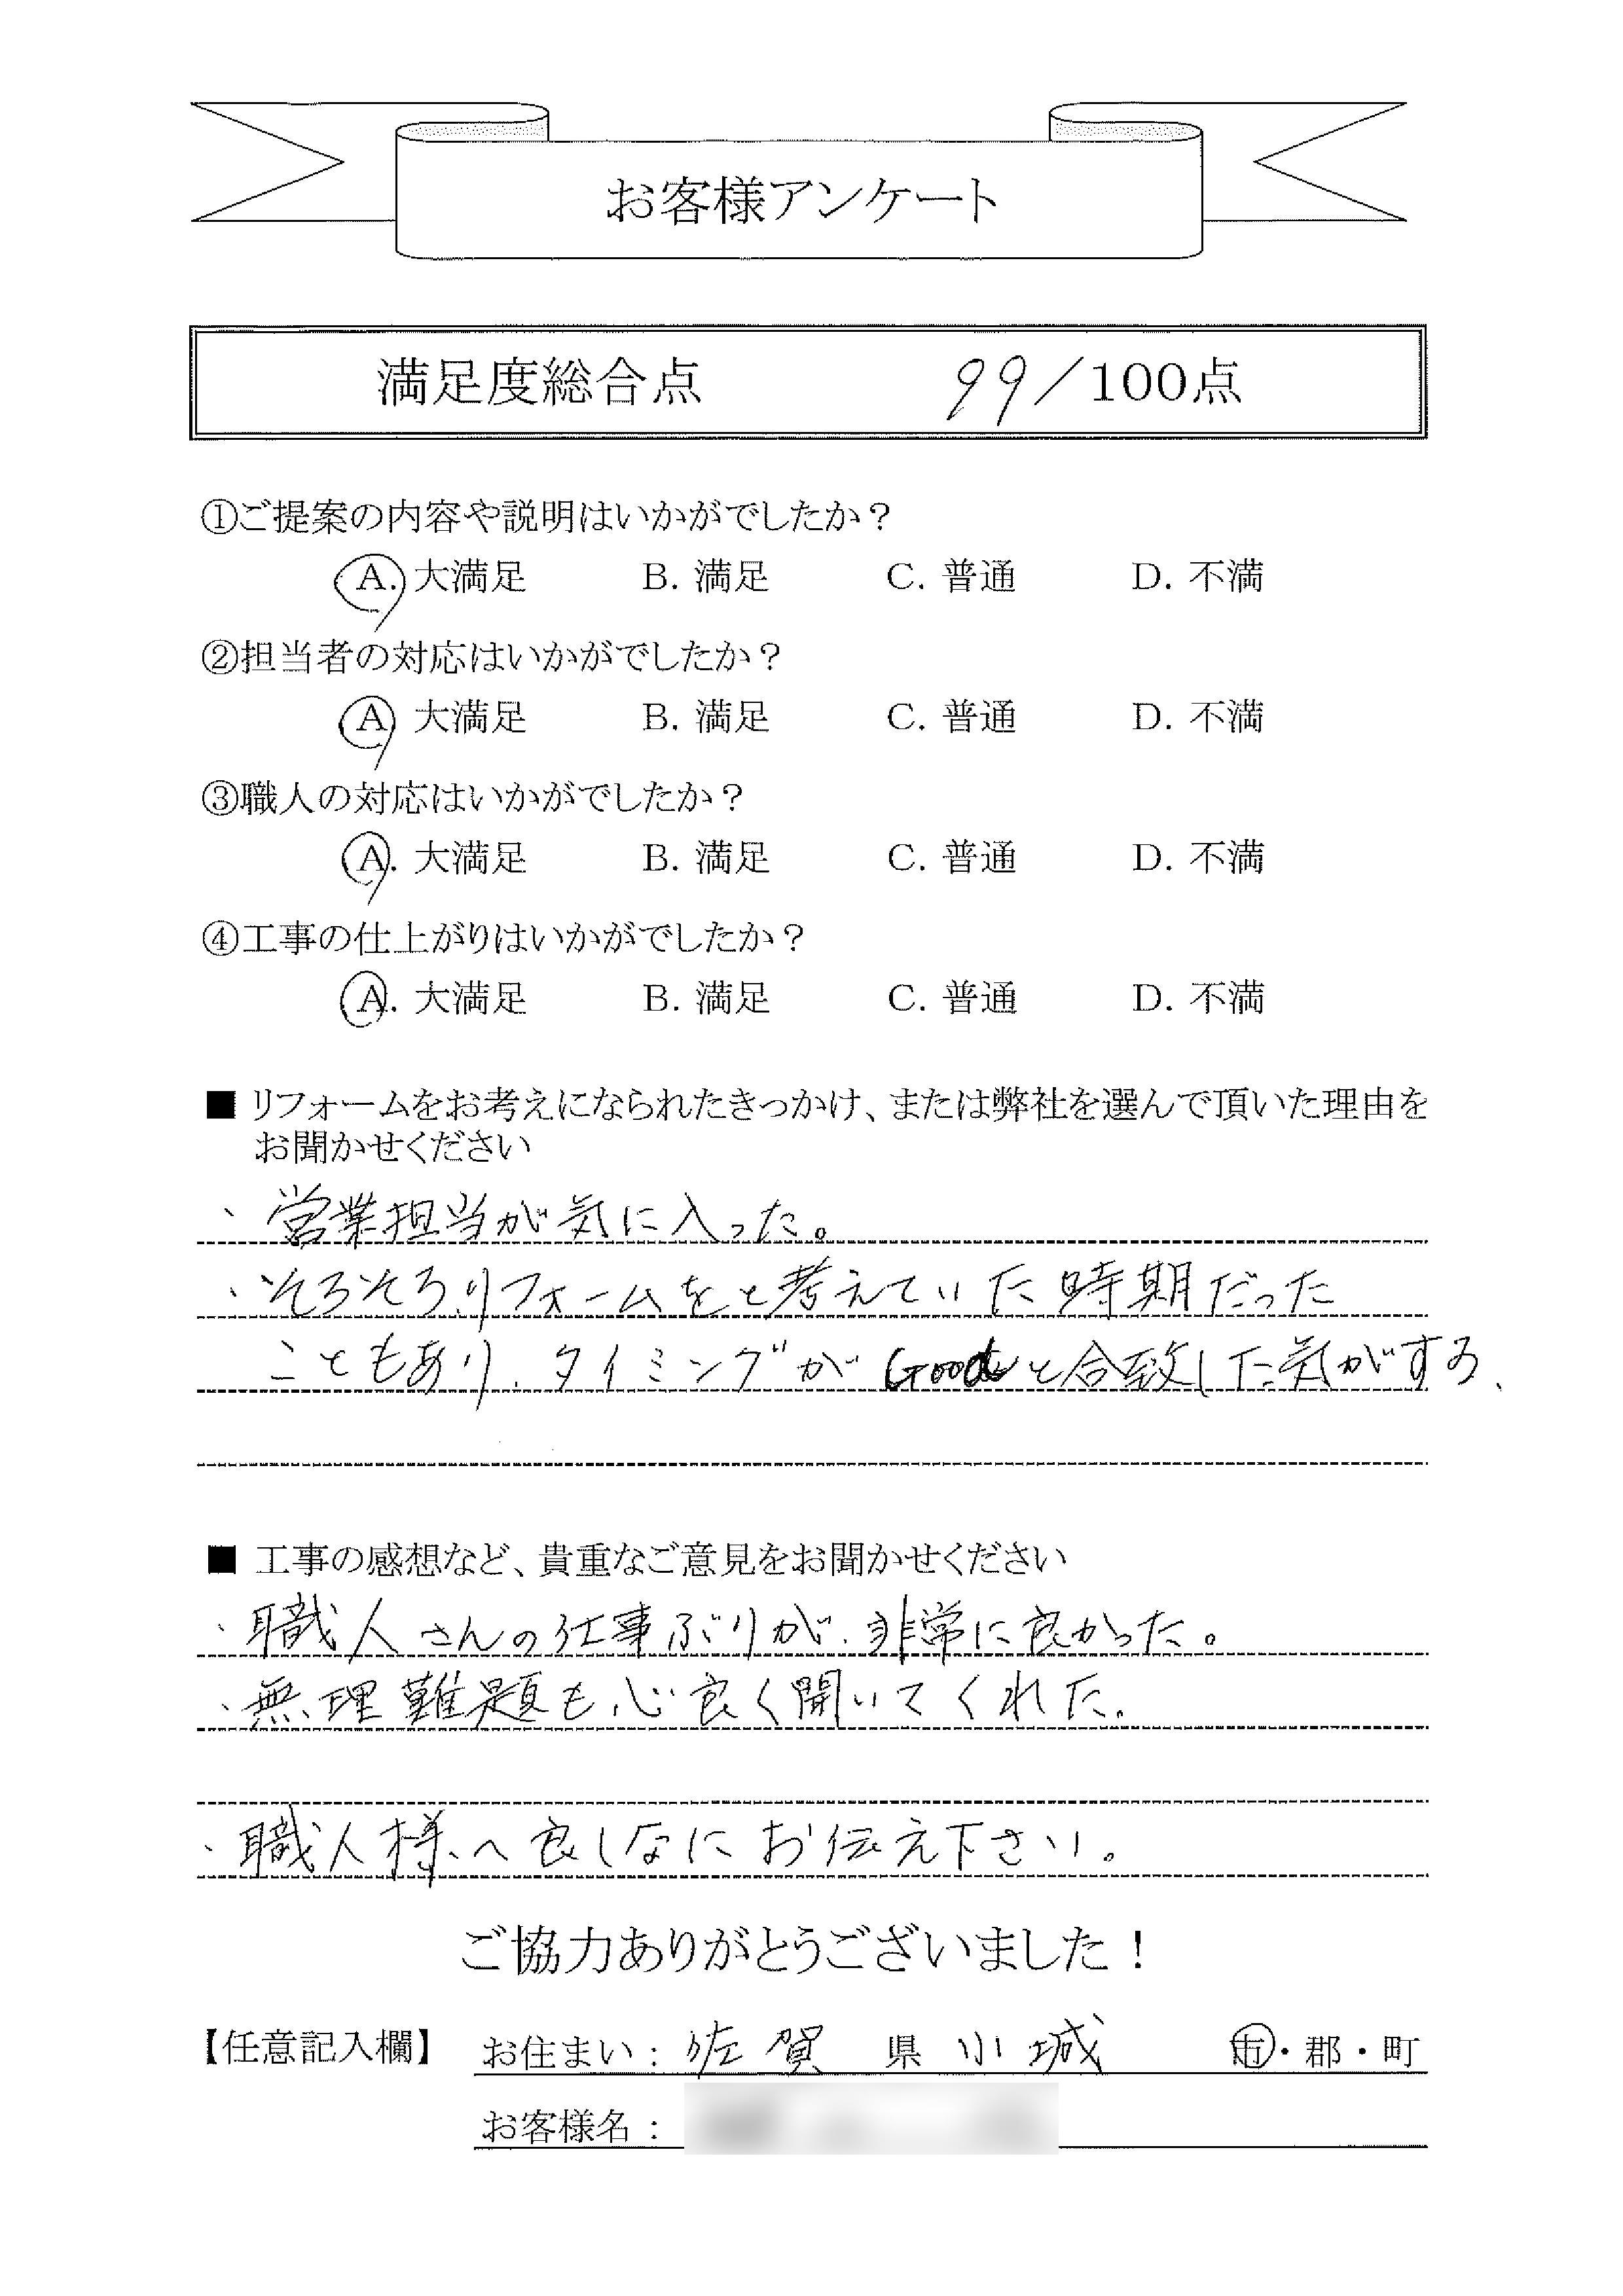 お客様アンケート
満足度総合点 99/100点
①ご提案の内容や説明はいかがでしたか？
A. 大満足 B. 満足 C. 普通 D. 不満
②担当者の対応はいかがでしたか？
A 大満足 B. 満足 C. 普通 D. 不満
③職人の対応はいかがでしたか？
A. 大満足 B. 満足 C. 普通 D. 不満
④工事の仕上がりはいかがでしたか？
A. 大満足 B. 満足 C. 普通 D. 不満
■ リフォームをお考えになられたきっかけ、または弊社を選んで頂いた理由を
お聞かせください
、営業担当が気に入った。
、そろそろリフォームをと考えていた時期だった
こともあり、タイミングがGoodと合致した気がする、
■ 工事の感想など、貴重なご意見をお聞かせください
、職人さんの仕事ぶりが、非常に良かった。
、無理難題も心良く聞いてくれた。
、職人様へ良しなにお伝え下さい。
ご協力ありがとうございました！
【任意記入欄】 お住まい：佐賀 県 小城 市・郡・町
お客様名：